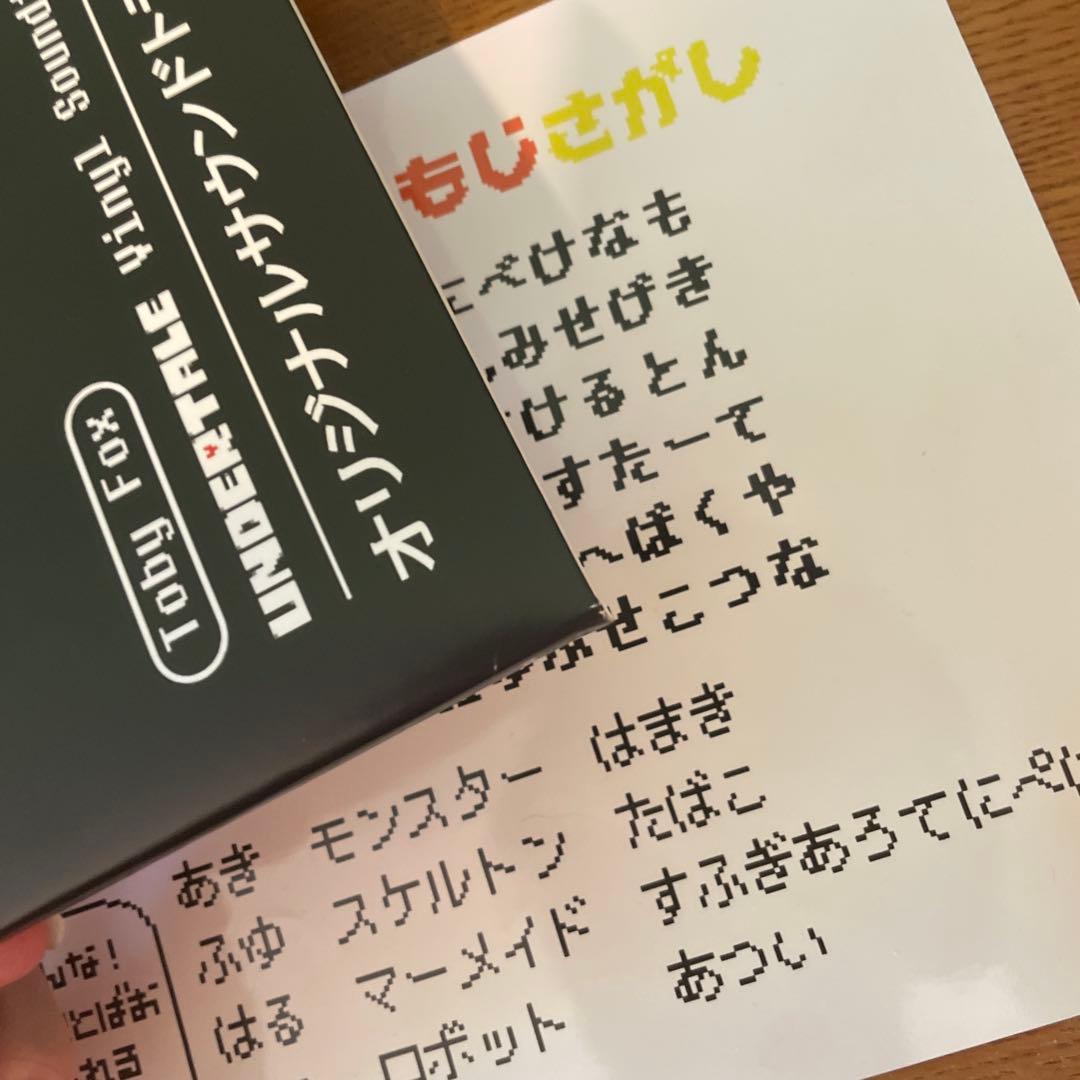 Toby Fox
UNDERTALE Vinyl Sound
オリジナルサウンドト
もじさがし
べけなも
みせげき
けるとん
すたーて
へばくや
ふせこつな
あき モンスター はまき
ふゆ スケルトン たばこ
はる マーメイド すふぎあろてにぺけ
ロボット あつい
んな!
とばお
れる